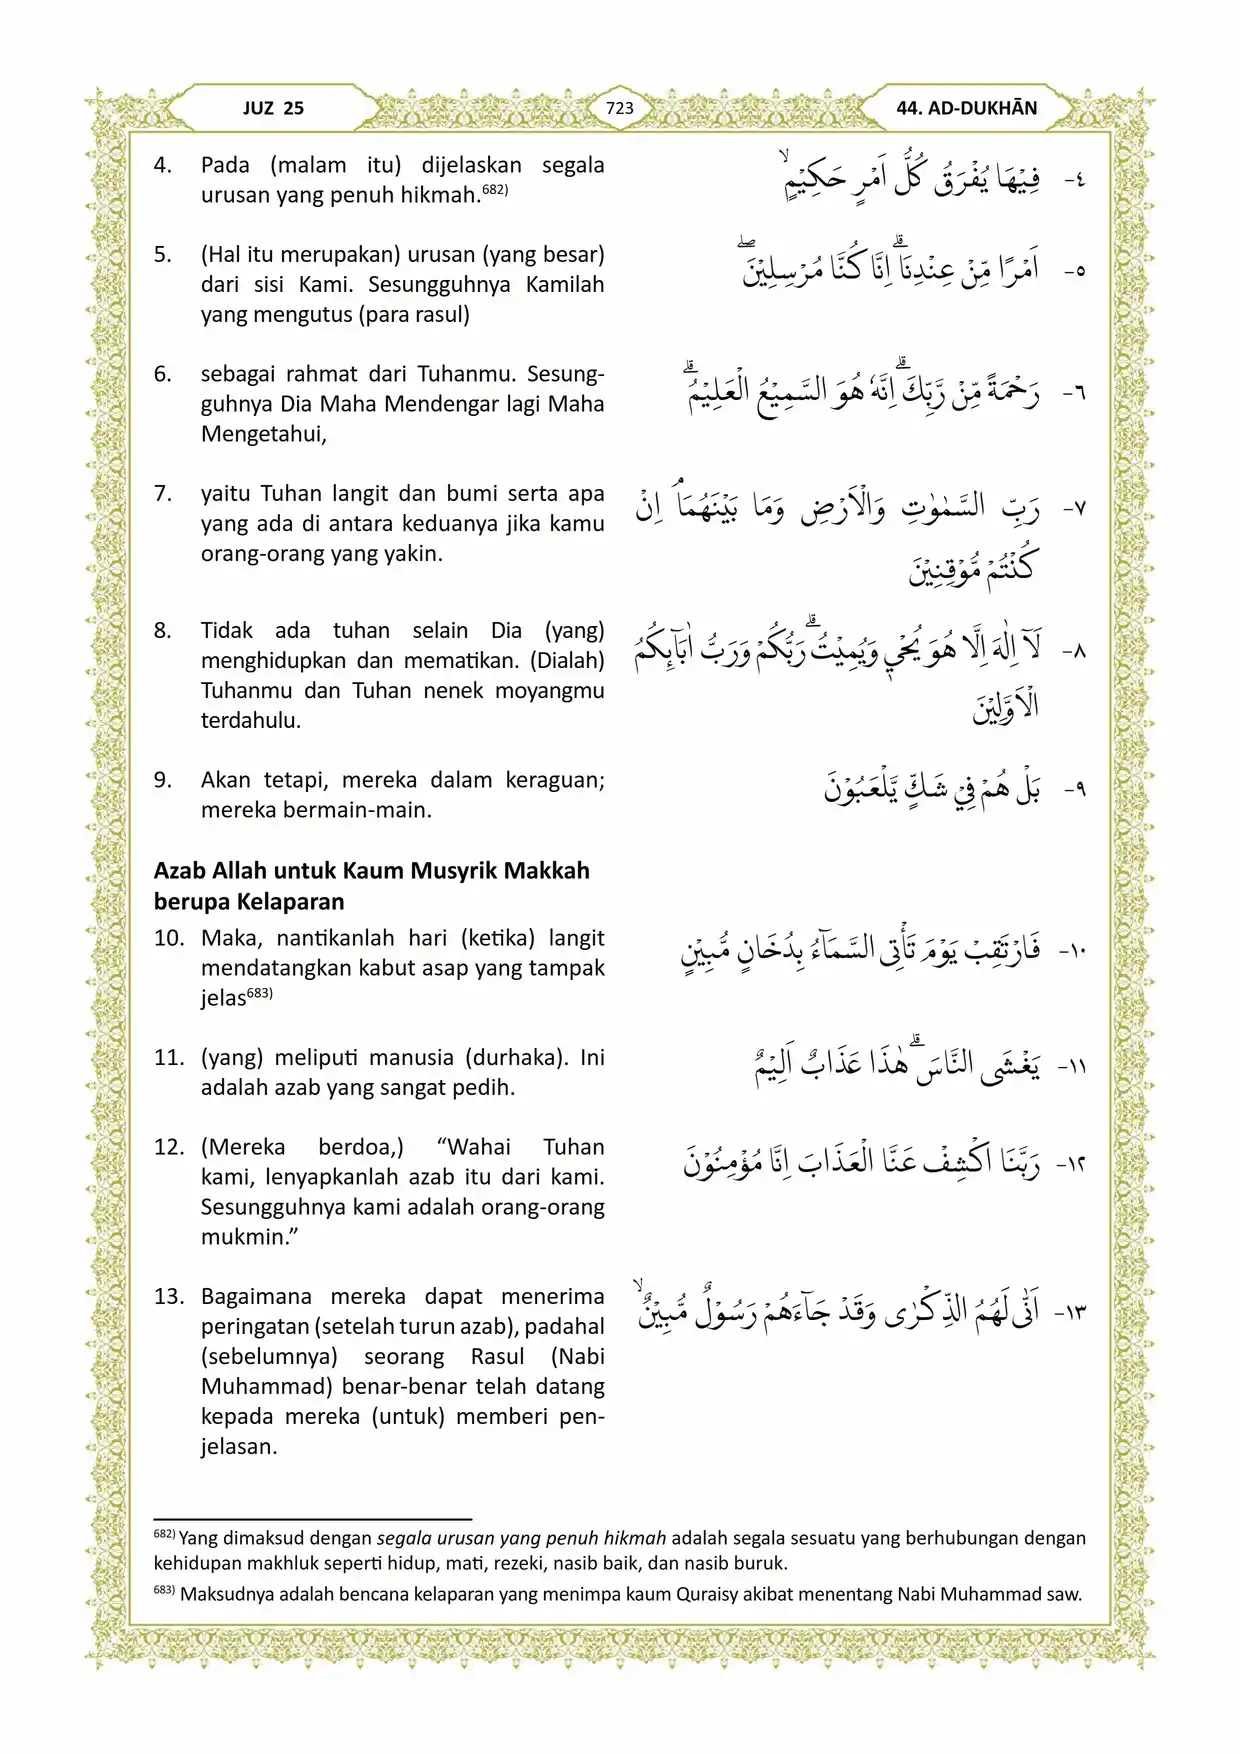 JUZ 25
723
44. AD-DUKHĀN
4. Pada (malam itu) dijelaskan segala
urusan yang penuh hikmah.682)
٤- فِيْهَا يُفْرَقُ كُلُّ اَمْرٍ حَكِيْمٍۙ
5. (Hal itu merupakan) urusan (yang besar)
dari sisi Kami. Sesungguhnya Kamilah
yang mengutus (para rasul)
٥- اَمْرًا مِّنْ عِنْدِنَاۗ اِنَّا كُنَّا مُرْسِلِيْنَۖ
6. sebagai rahmat dari Tuhanmu. Sesung-
guhnya Dia Maha Mendengar lagi Maha
Mengetahui,
٦- رَحْمَةً مِّنْ رَّبِّكَۗ اِنَّهٗ هُوَ السَّمِيْعُ الْعَلِيْمُۗ
7. yaitu Tuhan langit dan bumi serta apa
yang ada di antara keduanya jika kamu
orang-orang yang yakin.
٧- رَبِّ السَّمٰوٰتِ وَالْاَرْضِ وَمَا بَيْنَهُمَاۘ اِنْ
كُنْتُمْ مُّوْقِنِيْنَ
8. Tidak ada tuhan selain Dia (yang)
menghidupkan dan mematikan. (Dialah)
Tuhanmu dan Tuhan nenek moyangmu
terdahulu.
٨- لَآ اِلٰهَ اِلَّا هُوَ يُحْيٖ وَيُمِيْتُۗ رَبُّكُمْ وَرَبُّ اٰبَاۤىِٕكُمُ
الْاَوَّلِيْنَ
9. Akan tetapi, mereka dalam keraguan;
mereka bermain-main.
٩- بَلْ هُمْ فِيْ شَكٍّ يَّلْعَبُوْنَ
Azab Allah untuk Kaum Musyrik Makkah
berupa Kelaparan
10. Maka, nantikanlah hari (ketika) langit
mendatangkan kabut asap yang tampak
jelas683)
١٠- فَارْتَقِبْ يَوْمَ تَأْتِى السَّمَاۤءُ بِدُخَانٍ مُّبِيْنٍ
11. (yang) meliputi manusia (durhaka). Ini
adalah azab yang sangat pedih.
١١- يَغْشَى النَّاسَۗ هٰذَا عَذَابٌ اَلِيْمٌ
12. (Mereka berdoa,) “Wahai Tuhan
kami, lenyapkanlah azab itu dari kami.
Sesungguhnya kami adalah orang-orang
mukmin.”
١٢- رَبَّنَا اكْشِفْ عَنَّا الْعَذَابَ اِنَّا مُؤْمِنُوْنَ
13. Bagaimana mereka dapat menerima
peringatan (setelah turun azab), padahal
(sebelumnya) seorang Rasul (Nabi
Muhammad) benar-benar telah datang
kepada mereka (untuk) memberi pen-
jelasan.
١٣- اَنّٰى لَهُمُ الذِّكْرٰى وَقَدْ جَاۤءَهُمْ رَسُوْلٌ مُّبِيْنٌۙ
682) Yang dimaksud dengan segala urusan yang penuh hikmah adalah segala sesuatu yang berhubungan dengan
kehidupan makhluk seperti hidup, mati, rezeki, nasib baik, dan nasib buruk.
683) Maksudnya adalah bencana kelaparan yang menimpa kaum Quraisy akibat menentang Nabi Muhammad saw.